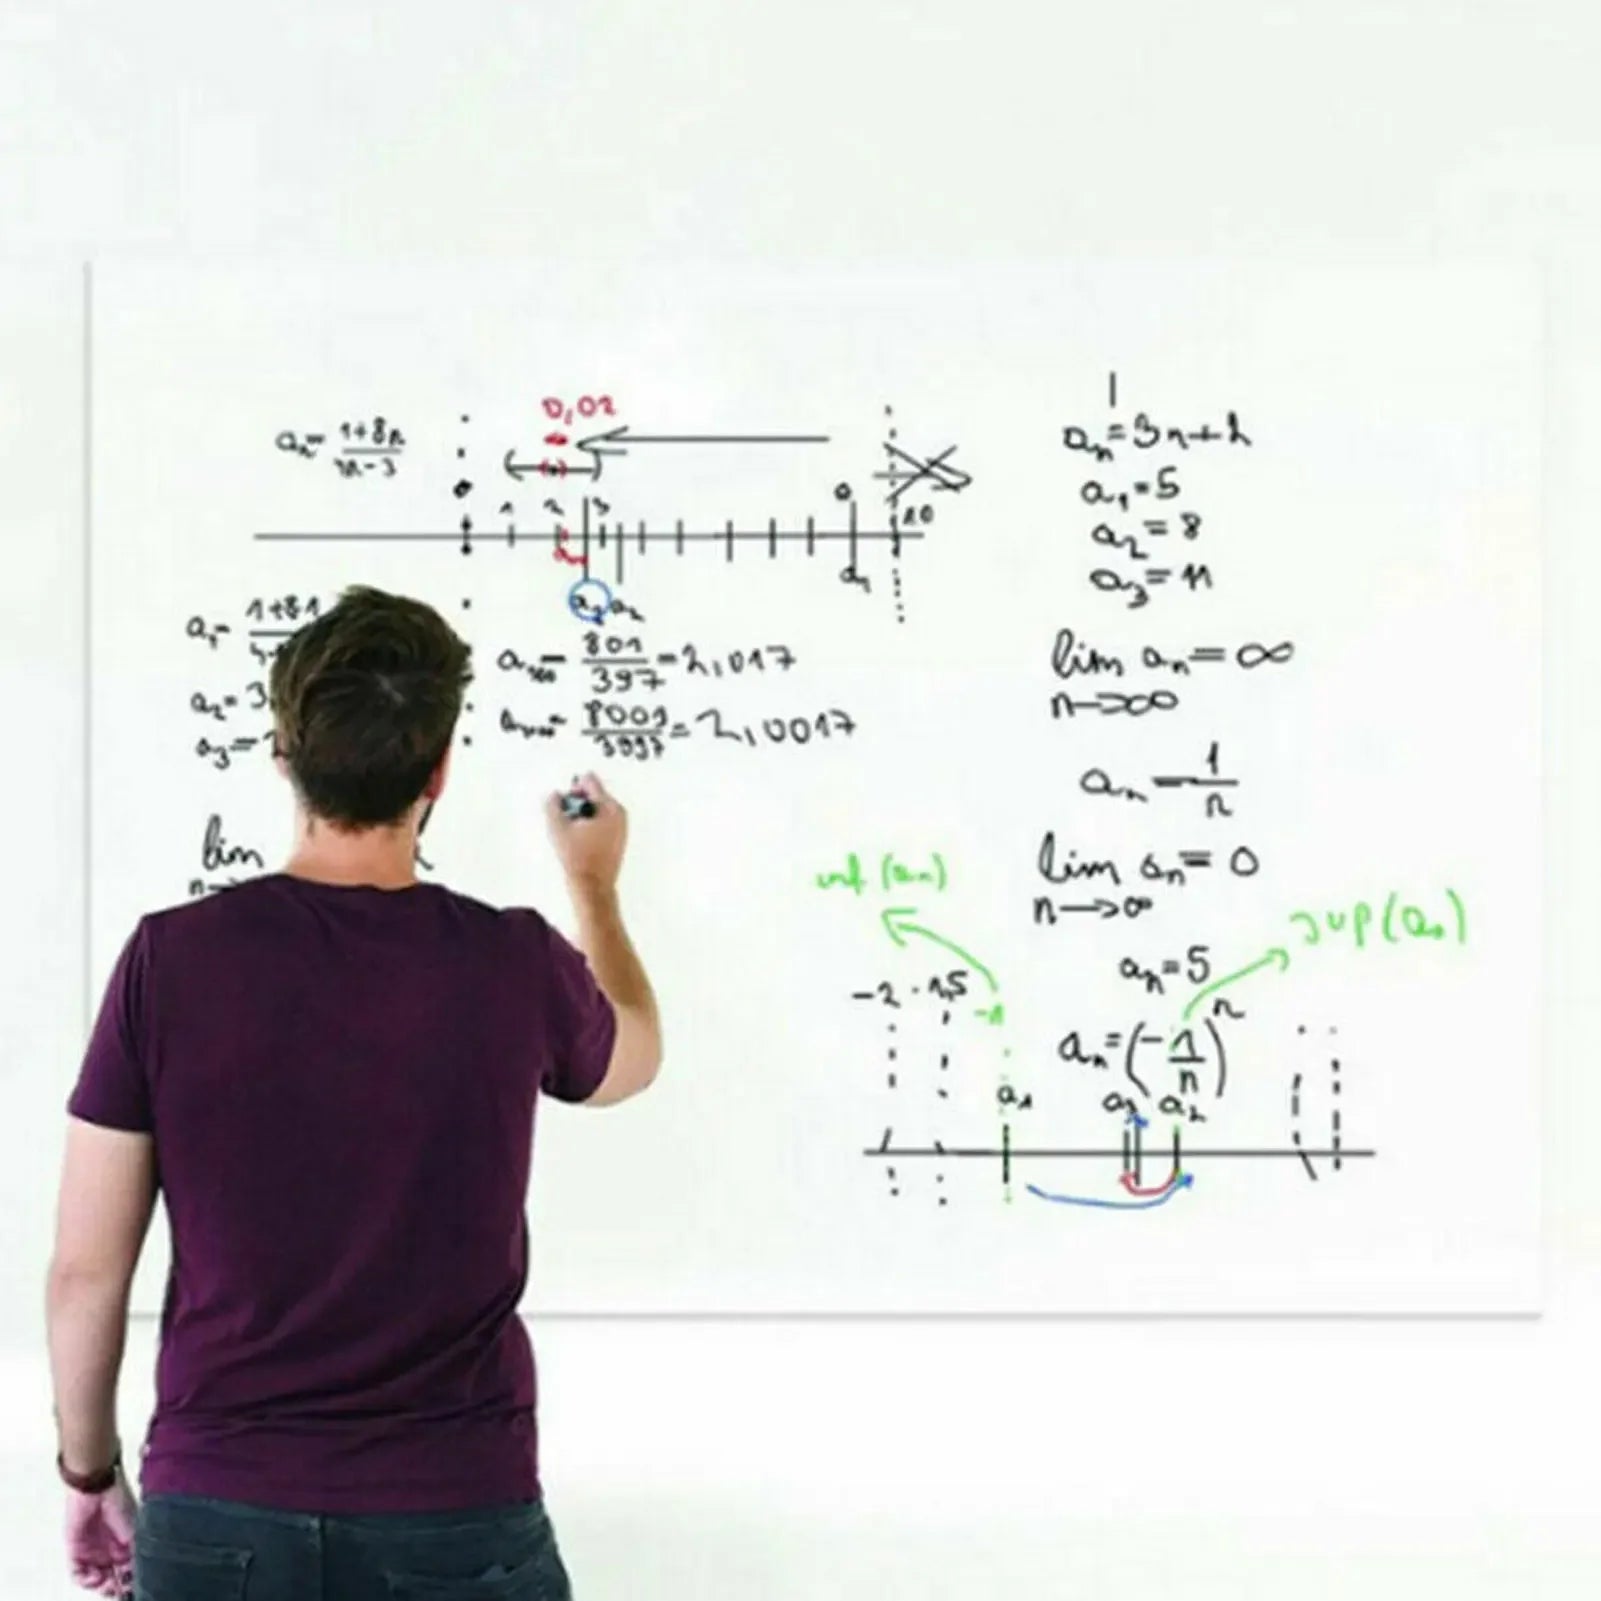 0,02
aₙ = (1+8n)/(4n-3)
1 2 3
9
10
a₁
a₃ a₂
a₁ = 1+8·1
a₂ = 3,
a₃ =
a₁₀₀ = 801/397 = 2,017
a₁₀₀₀ = 8001/3997 = 2,0017
lim
n→
aₙ = 3n+2
a₁ = 5
a₂ = 8
a₃ = 11
lim aₙ = ∞
n→∞
aₙ = 1/n
lim aₙ = 0
n→∞
inf (aₙ)
sup(aₙ)
aₙ = 5
-2 -1,5 -1
aₙ = (-1/n)ⁿ
a₁ a₃ a₂